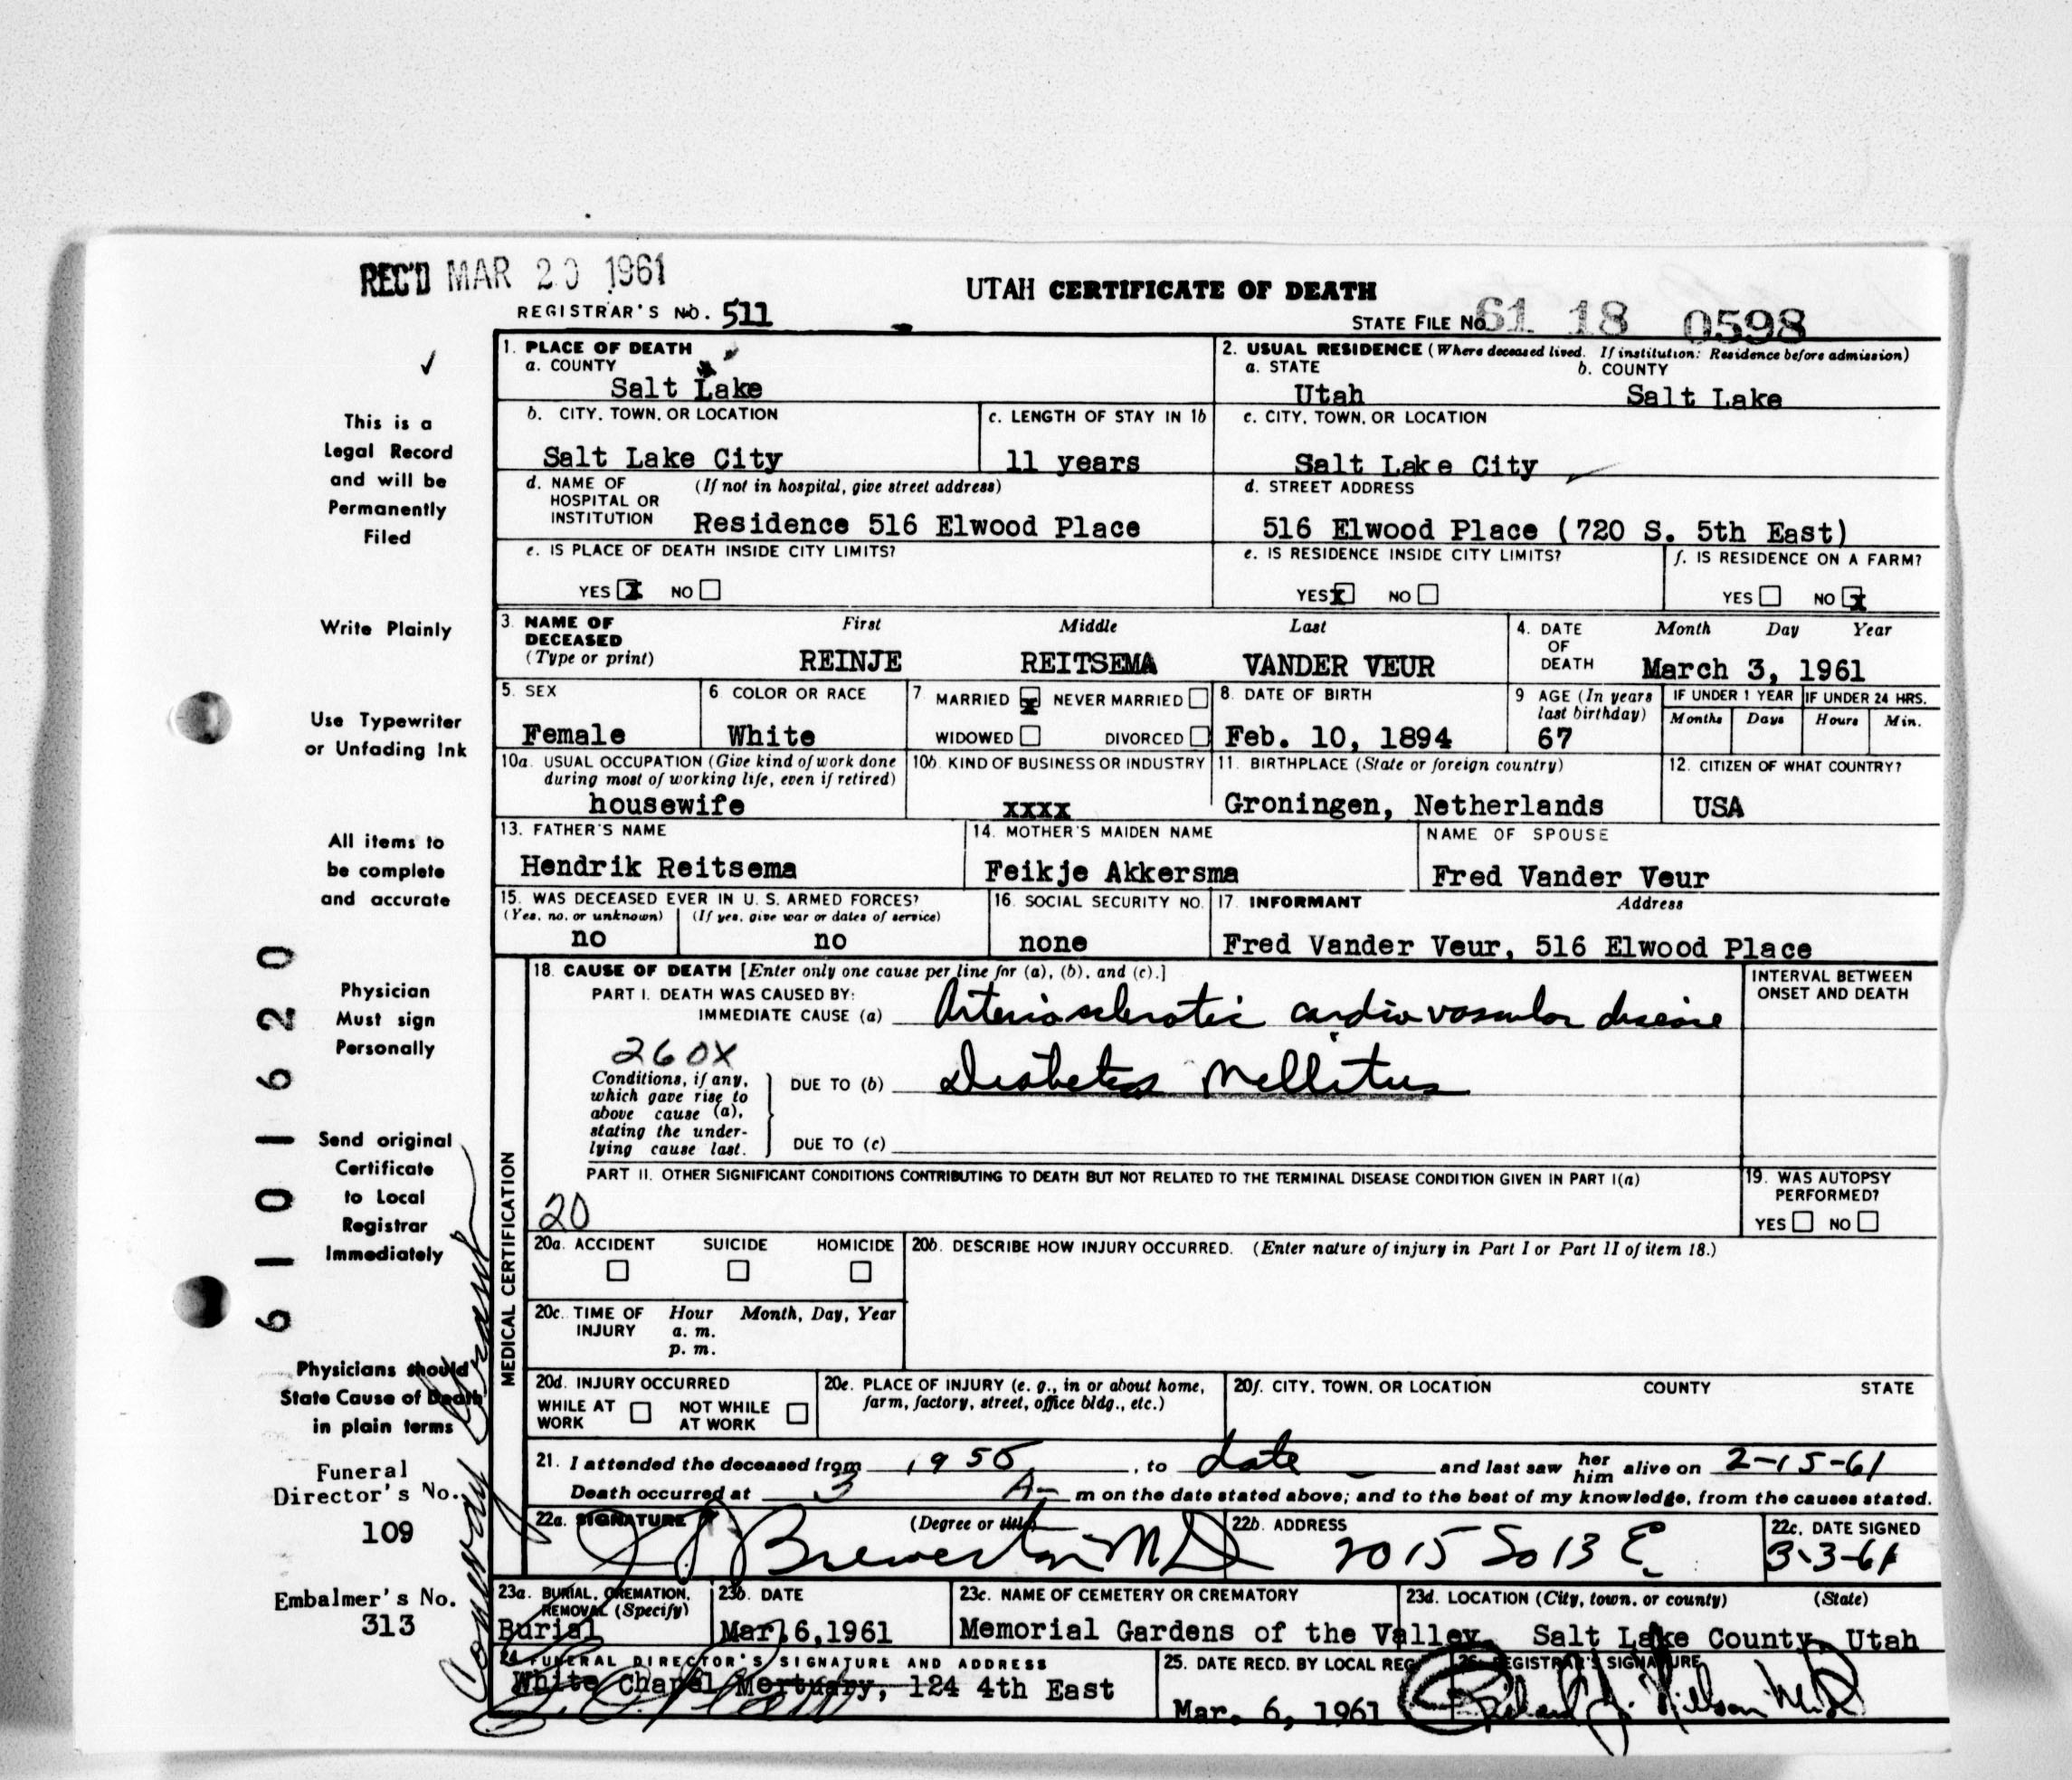 REC'D MAR 20 1961
UTAH CERTIFICATE OF DEATH
REGISTRAR'S NO. 511
STATE FILE No. 61 18 0598
1. PLACE OF DEATH
a. COUNTY
Salt Lake
2. USUAL RESIDENCE (Where deceased lived. If institution: Residence before admission)
a. STATE b. COUNTY
Utah Salt Lake
b. CITY, TOWN, OR LOCATION
Salt Lake City
c. LENGTH OF STAY IN 1b
11 years
c. CITY, TOWN, OR LOCATION
Salt Lake City
d. NAME OF HOSPITAL OR INSTITUTION (If not in hospital, give street address)
Residence 516 Elwood Place
d. STREET ADDRESS
516 Elwood Place (720 S. 5th East)
e. IS PLACE OF DEATH INSIDE CITY LIMITS?
YES X NO
e. IS RESIDENCE INSIDE CITY LIMITS?
YES X NO
f. IS RESIDENCE ON A FARM?
YES NO X
3. NAME OF DECEASED (Type or print)
First Middle Last
REINJE REITSEMA VANDER VEUR
4. DATE OF DEATH Month Day Year
March 3, 1961
5. SEX
Female
6. COLOR OR RACE
White
7. MARRIED X NEVER MARRIED
WIDOWED DIVORCED
8. DATE OF BIRTH
Feb. 10, 1894
9. AGE (In years last birthday)
67
IF UNDER 1 YEAR
Months Days
IF UNDER 24 HRS.
Hours Min.
10a. USUAL OCCUPATION (Give kind of work done during most of working life, even if retired)
housewife
10b. KIND OF BUSINESS OR INDUSTRY
xxxx
11. BIRTHPLACE (State or foreign country)
Groningen, Netherlands
12. CITIZEN OF WHAT COUNTRY?
USA
13. FATHER'S NAME
Hendrik Reitsema
14. MOTHER'S MAIDEN NAME
Feikje Akkersma
NAME OF SPOUSE
Fred Vander Veur
15. WAS DECEASED EVER IN U. S. ARMED FORCES?
(Yes, no, or unknown) (If yes, give war or dates of service)
no no
16. SOCIAL SECURITY NO.
none
17. INFORMANT Address
Fred Vander Veur, 516 Elwood Place
MEDICAL CERTIFICATION
18. CAUSE OF DEATH [Enter only one cause per line for (a), (b), and (c).]
PART I. DEATH WAS CAUSED BY:
IMMEDIATE CAUSE (a) Arteriosclerotic cardiovascular disease
INTERVAL BETWEEN ONSET AND DEATH
260X
Conditions, if any, which gave rise to above cause (a), stating the underlying cause last.
DUE TO (b) Diabetes Mellitus
DUE TO (c)
PART II. OTHER SIGNIFICANT CONDITIONS CONTRIBUTING TO DEATH BUT NOT RELATED TO THE TERMINAL DISEASE CONDITION GIVEN IN PART I(a)
20
19. WAS AUTOPSY PERFORMED?
YES NO
20a. ACCIDENT SUICIDE HOMICIDE
20b. DESCRIBE HOW INJURY OCCURRED. (Enter nature of injury in Part I or Part II of item 18.)
20c. TIME OF INJURY Hour Month, Day, Year
a. m.
p. m.
20d. INJURY OCCURRED
WHILE AT WORK NOT WHILE AT WORK
20e. PLACE OF INJURY (e. g., in or about home, farm, factory, street, office bldg., etc.)
20f. CITY, TOWN, OR LOCATION COUNTY STATE
21. I attended the deceased from 1950, to date and last saw her him alive on 2-15-61
Death occurred at 3 A- m on the date stated above; and to the best of my knowledge, from the causes stated.
22a. SIGNATURE (Degree or title)
Brewerton MD
22b. ADDRESS
2015 So 13 E
22c. DATE SIGNED
3-3-61
23a. BURIAL, CREMATION, REMOVAL (Specify)
Burial
23b. DATE
Mar. 6, 1961
23c. NAME OF CEMETERY OR CREMATORY
Memorial Gardens of the Valley
23d. LOCATION (City, town, or county) (State)
Salt Lake County, Utah
24. FUNERAL DIRECTOR'S SIGNATURE AND ADDRESS
White Chapel Mortuary, 124 4th East
25. DATE RECD. BY LOCAL REG.
Mar. 6, 1961
26. REGISTRAR'S SIGNATURE
This is a
Legal Record
and will be
Permanently
Filed
Write Plainly
Use Typewriter
or Unfading Ink
All items to
be complete
and accurate
Physician
Must sign
Personally
Send original
Certificate
to Local
Registrar
Immediately
Physicians should
State Cause of Death
in plain terms
Funeral
Director's No.
109
Embalmer's No.
313
61 01620